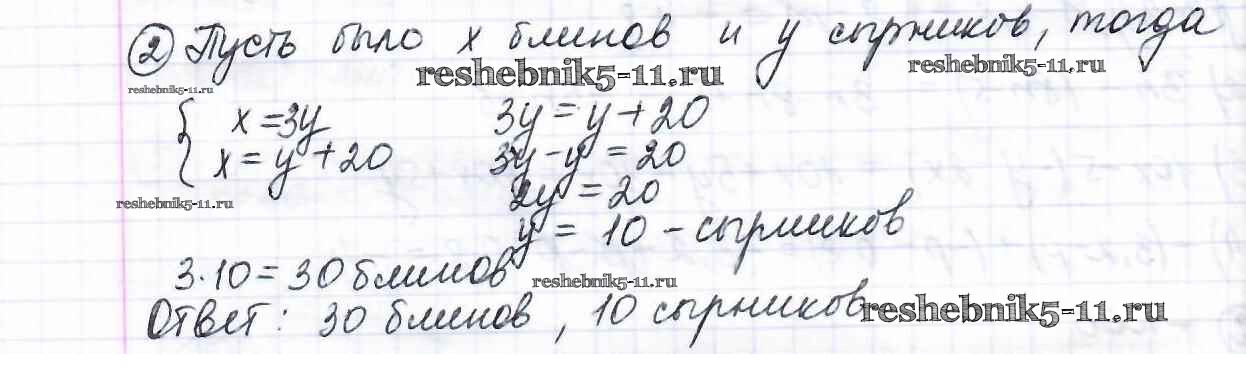 ② Пусть было x блинов и y сырников, тогда
reshebnik5-11.ru
reshebnik5-11.ru
reshebnik5-11.ru
{ x = 3y
x = y + 20
3y = y + 20
3y - y = 20
2y = 20
y = 10 - сырников
reshebnik5-11.ru
3·10 = 30 блинов
reshebnik5-11.ru
Ответ: 30 блинов, 10 сырников
reshebnik5-11.ru